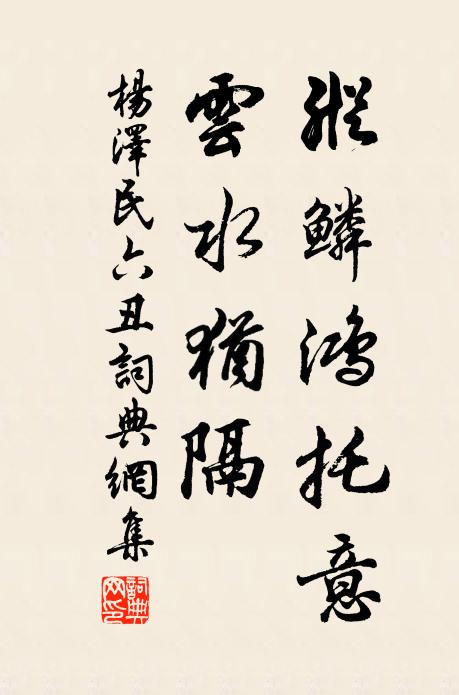 縱鱗鴻托意
雲水猶隔
楊澤民六丑詞典網集
詞典網印